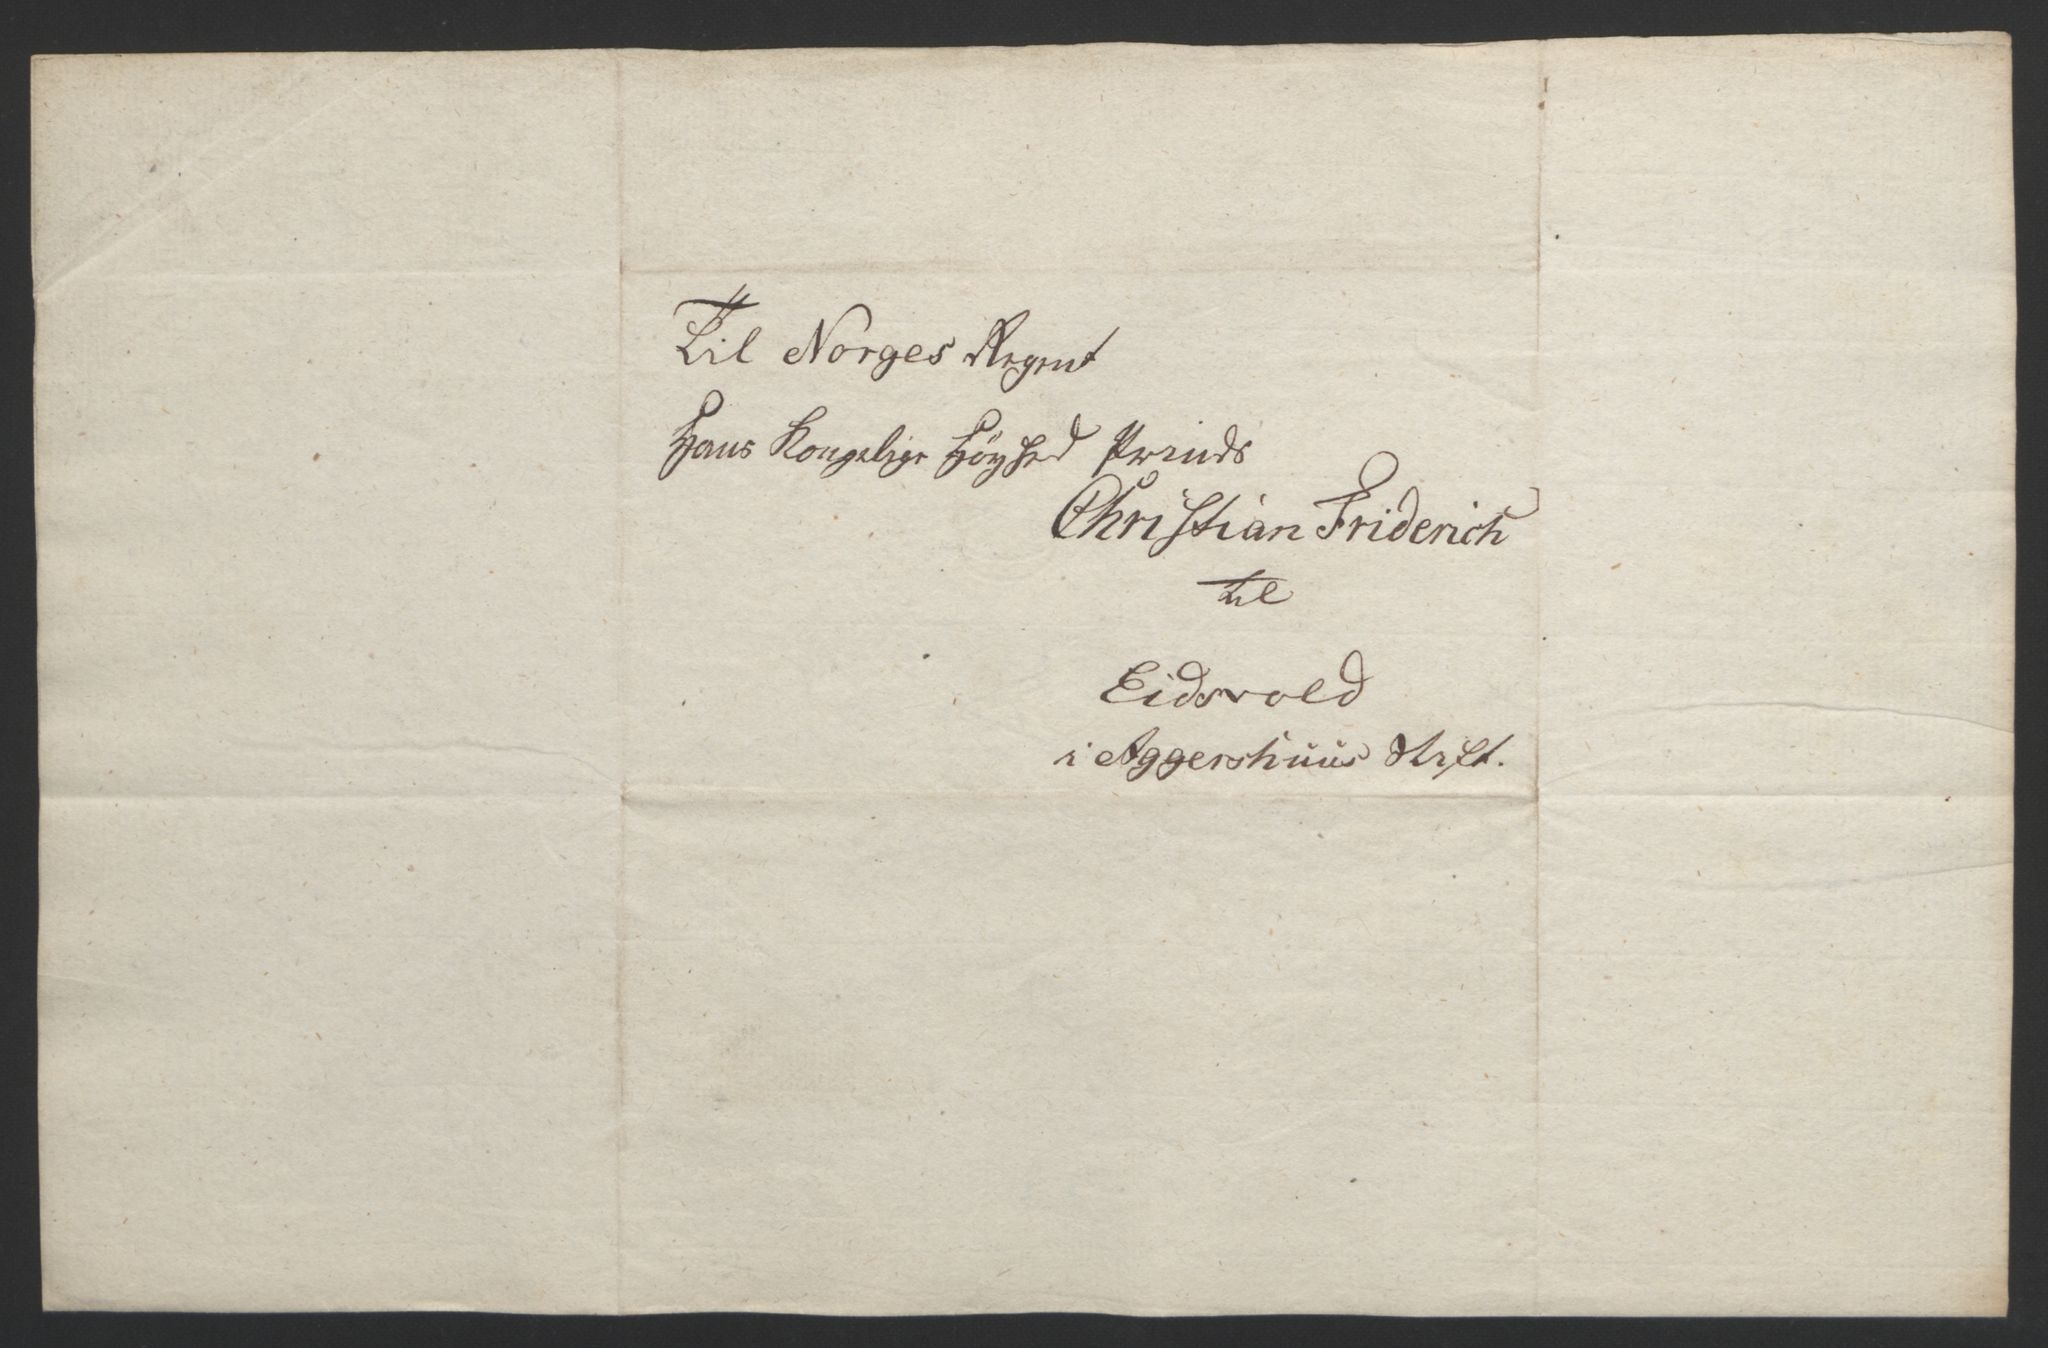 Til Norges Regent
Hans Kongelige Høyhed Prinds
Christian Friderich
til
Eidsvold
i Aggershuus Stift.